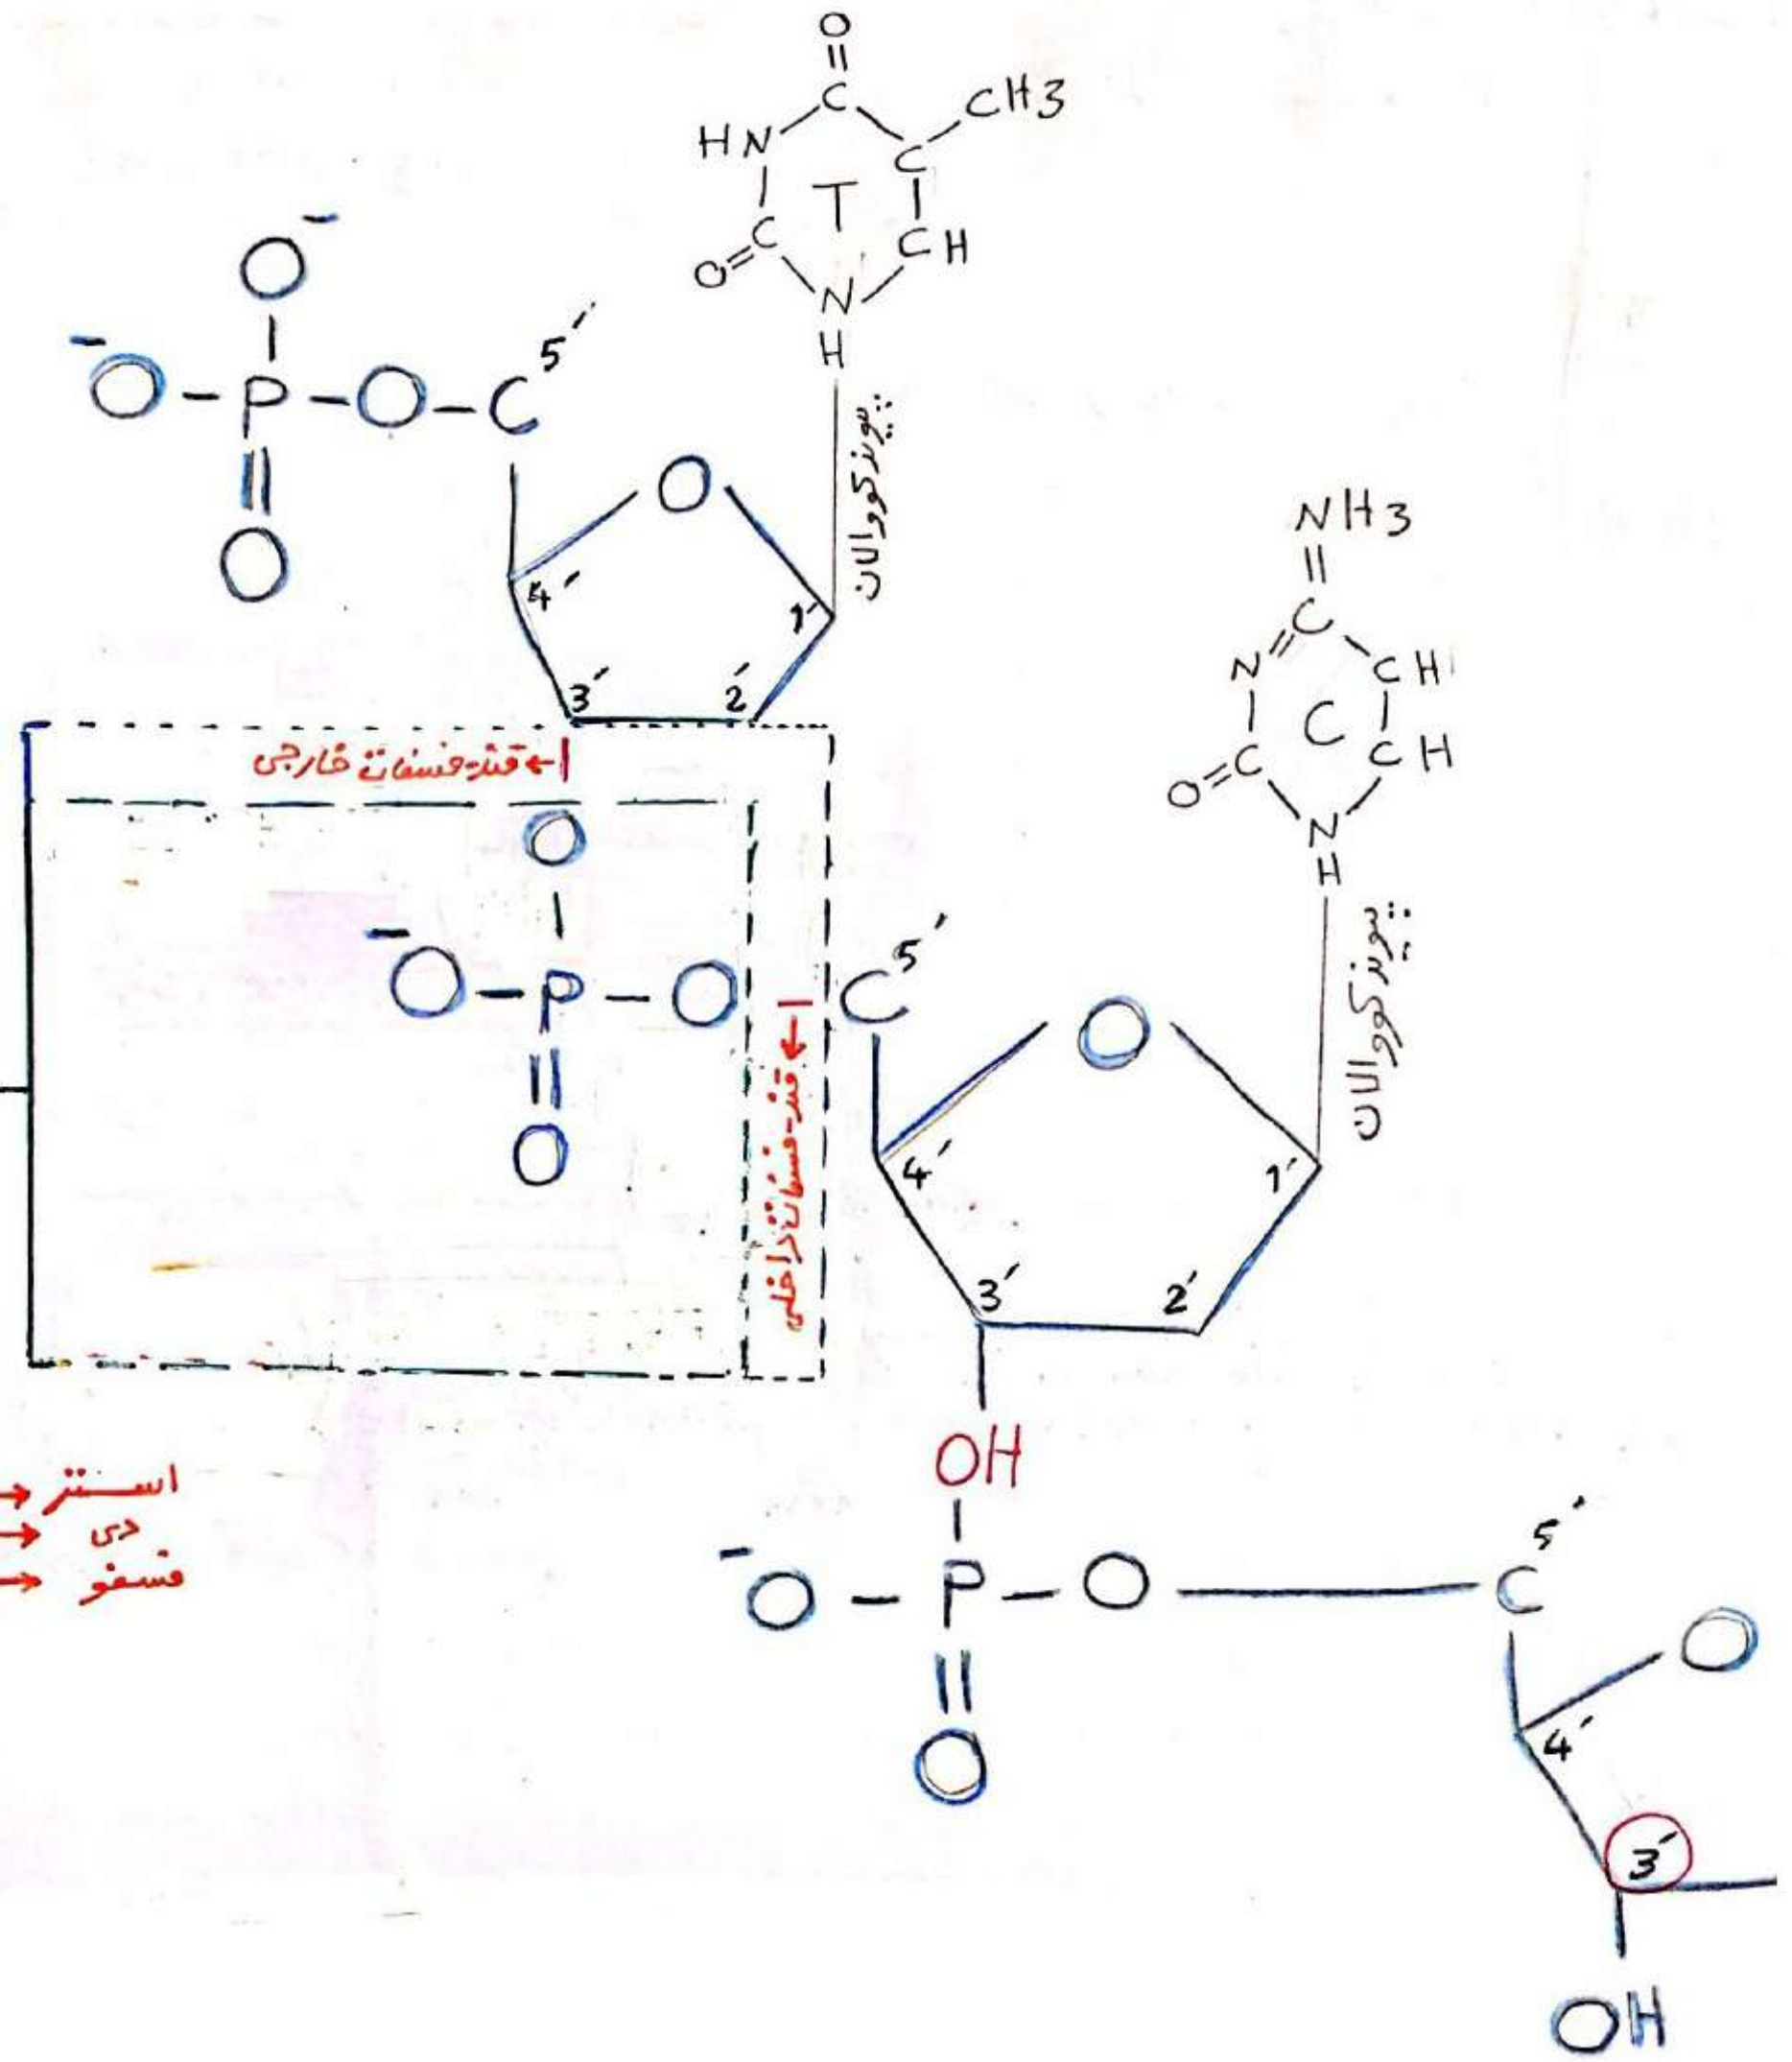 O
C
CH3
HN
C
T
C
CH
O
N
H
O⁻
⁻O
P
O
C
5′
O
پیوند کووالان
O
4′
1′
3′
2′
NH3
C
N
CH
C
C
CH
O
N
H
قند-فسفات خارجی
O
⁻O
P
O
O
قند-فسفات داخلی
C
5′
O
پیوند کووالان
4′
1′
3′
2′
OH
استر
دی
فسفو
⁻O
P
O
O
C
5′
O
4′
3′
OH